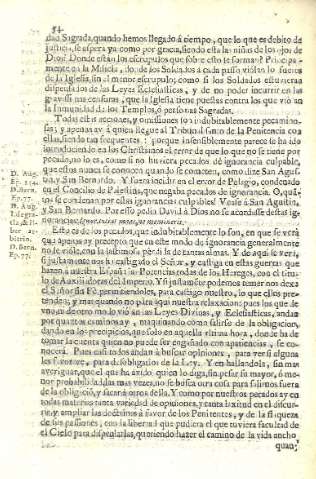 84
dad Sagrada, quando hemos llegado á tiempo, que lo que es debito de
justicia, se espera ya como por gracia, siendo esta las niñas de los ojos de
Dios? Donde están los escrupulos que sobre esto se forman? Principal-
mente en la Milicia, donde los Soldados a cada passo violan los fueros
de la Iglesia, sin el menor escrupulo; como si los Soldados estuvieran
dispensados de las Leyes Eclesiasticas, y de no poder incurrir en las
gravissimas censuras, que la Iglesia tiene puestas contra los que violan
la immunidad de los Templos, ó personas Sagradas.
Todas estas acciones, y omissiones son indubitablemente pecamino-
sas; y apenas ay á quien llegue al Tribunal santo de la Penitencia con
ellas, siendo tan frequentes: porque insensiblemente parece se ha ido
introduciendo en los Christianos el error de que lo que no se tiene por
pecado, no lo es, como si no huviera pecados de ignorancia culpable,
que estos nunca se conocen quando se cometen, como dize San Agus-
tin, y San Bernardo. Y fuera incidir en el error de Pelagio, condenado
en el Concilio de Palestina, que negaba pecados de ignorancia. O, quã-
tos se condenan por estas ignorancias culpables! Vease á San Agustin,
y San Bernardo. Por esso pedia David á Dios no se acordasse destas ig-
norancias:
Esto es de los pecados, que indubitablemente lo son, en que se verá
que apenas ay precepto que en este modo de ignorancia generalmente
no se viole, con la lastimosa perdida de tantas almas. Y de aqui se verá,
si justamente nos ha castigado el Señor, y castiga en estas guerras que
hazen á nuestra España las Potencias todas de los Hereges, con el titu-
lo de Auxiliadores del Imperio. Y si justamente podemos temer nos dexe
el Señor sin Fé, permitiendoles, para castigo nuestro, lo que ellos pre-
tenden; y mas quando no para aqui nuestra relaxacion: pues los que de
vno, ú de otro modo violan las Leyes Divinas, y Eclesiasticas, andan
por quantos caminos ay, maquinando cómo salirse de la obligacion,
dando en los precipicios, que solo en aquella vltima hora, donde ha de
tomar la cuenta quien no puede ser engañado con apariencias, se co-
nocerá. Pues casi todos andan á buscar opiniones, para ver si alguna
les favorece, para desobligarlos de la Ley. Y en hallandola, sin mas
averiguar, que el que ha avido quien lo diga, sin pesar su mayor, ó me-
nor probabilidad, las mas vezes, no se busca otra cosa para salirnos fuera
de la obligacion, y sacará otros della. Y como por nuestros pecados ay en
todas materias tanta variedad de opiniones, y tanta laxitud en el discur-
rir, y ampliar las doctrinas á favor de los Penitentes, y de la flaqueza
de las passiones, con la libertad que pudiera el que tuviera facultad de
el Cielo para dispensarlas, queriendo hazer el camino de la vida ancho,
quan-
D. Aug.
D. Bern.
Ep. 77.
D. Aug.
D. Bern.
Ep. 77.